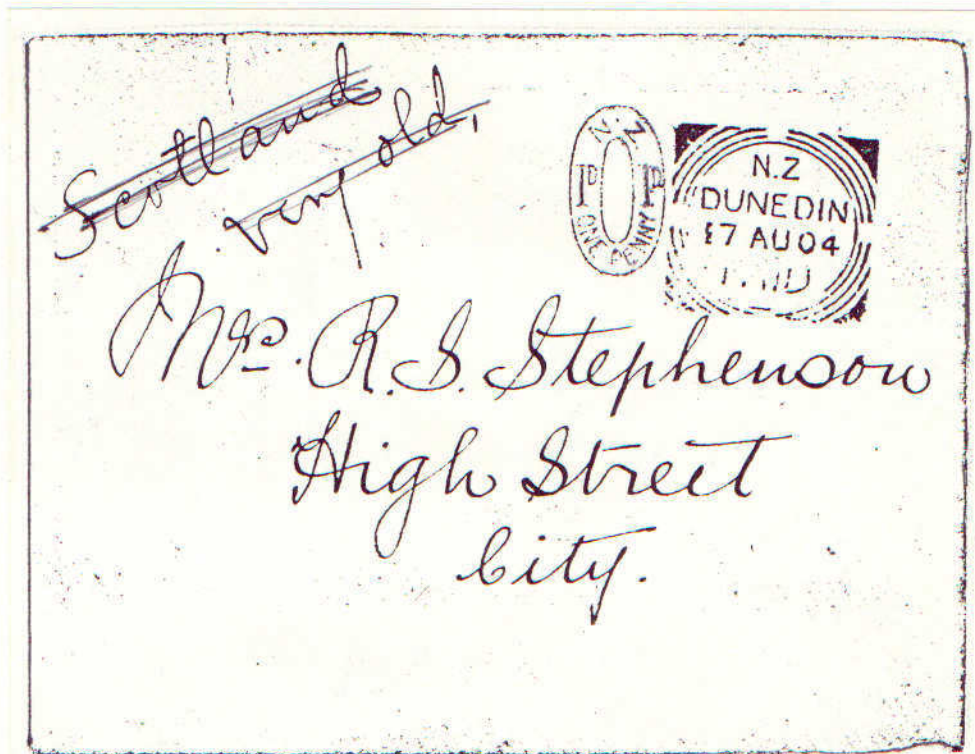 Scotland
very old,
N.Z
PD PD
ONE PENNY
N.Z
DUNEDIN
7 AU04
Mrs. R. S. Stephenson
High Street
City.